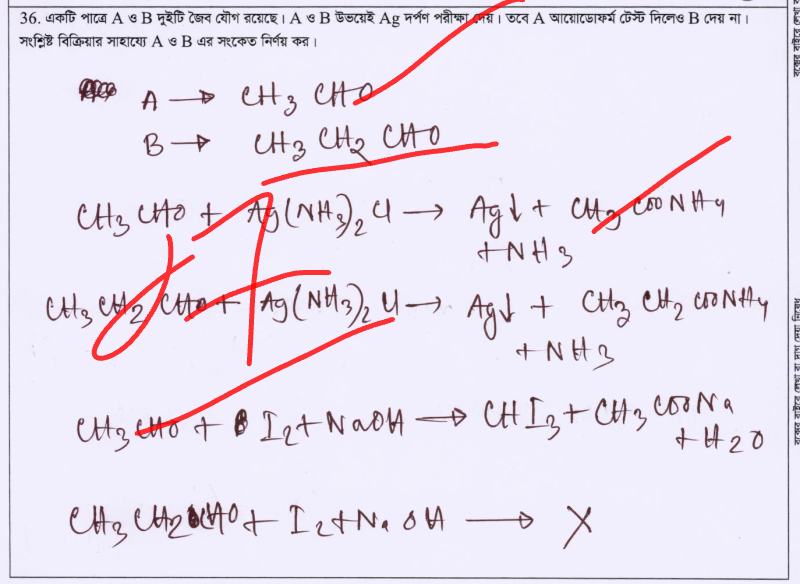 36. একটি পাত্রে A ও B দুইটি জৈব যৌগ রয়েছে। A ও B উভয়েই Ag দর্পণ পরীক্ষা দেয়। তবে A আয়োডোফর্ম টেস্ট দিলেও B দেয় না।
সংশ্লিষ্ট বিক্রিয়ার সাহায্যে A ও B এর সংকেত নির্ণয় কর।
A → CH3 CHO
B → CH3 CH2 CHO
CH3 CHO + Ag(NH3)2 Cl → Ag↓ + CH3 COONH4
+ NH3
CH3 CH2 CHO + Ag(NH3)2 Cl → Ag↓ + CH3 CH2 COONH4
+ NH3
CH3 CHO + I2 + NaOH → CHI3 + CH3 COONa
+ H2O
CH3 CH2 CHO + I2 + NaOH → X